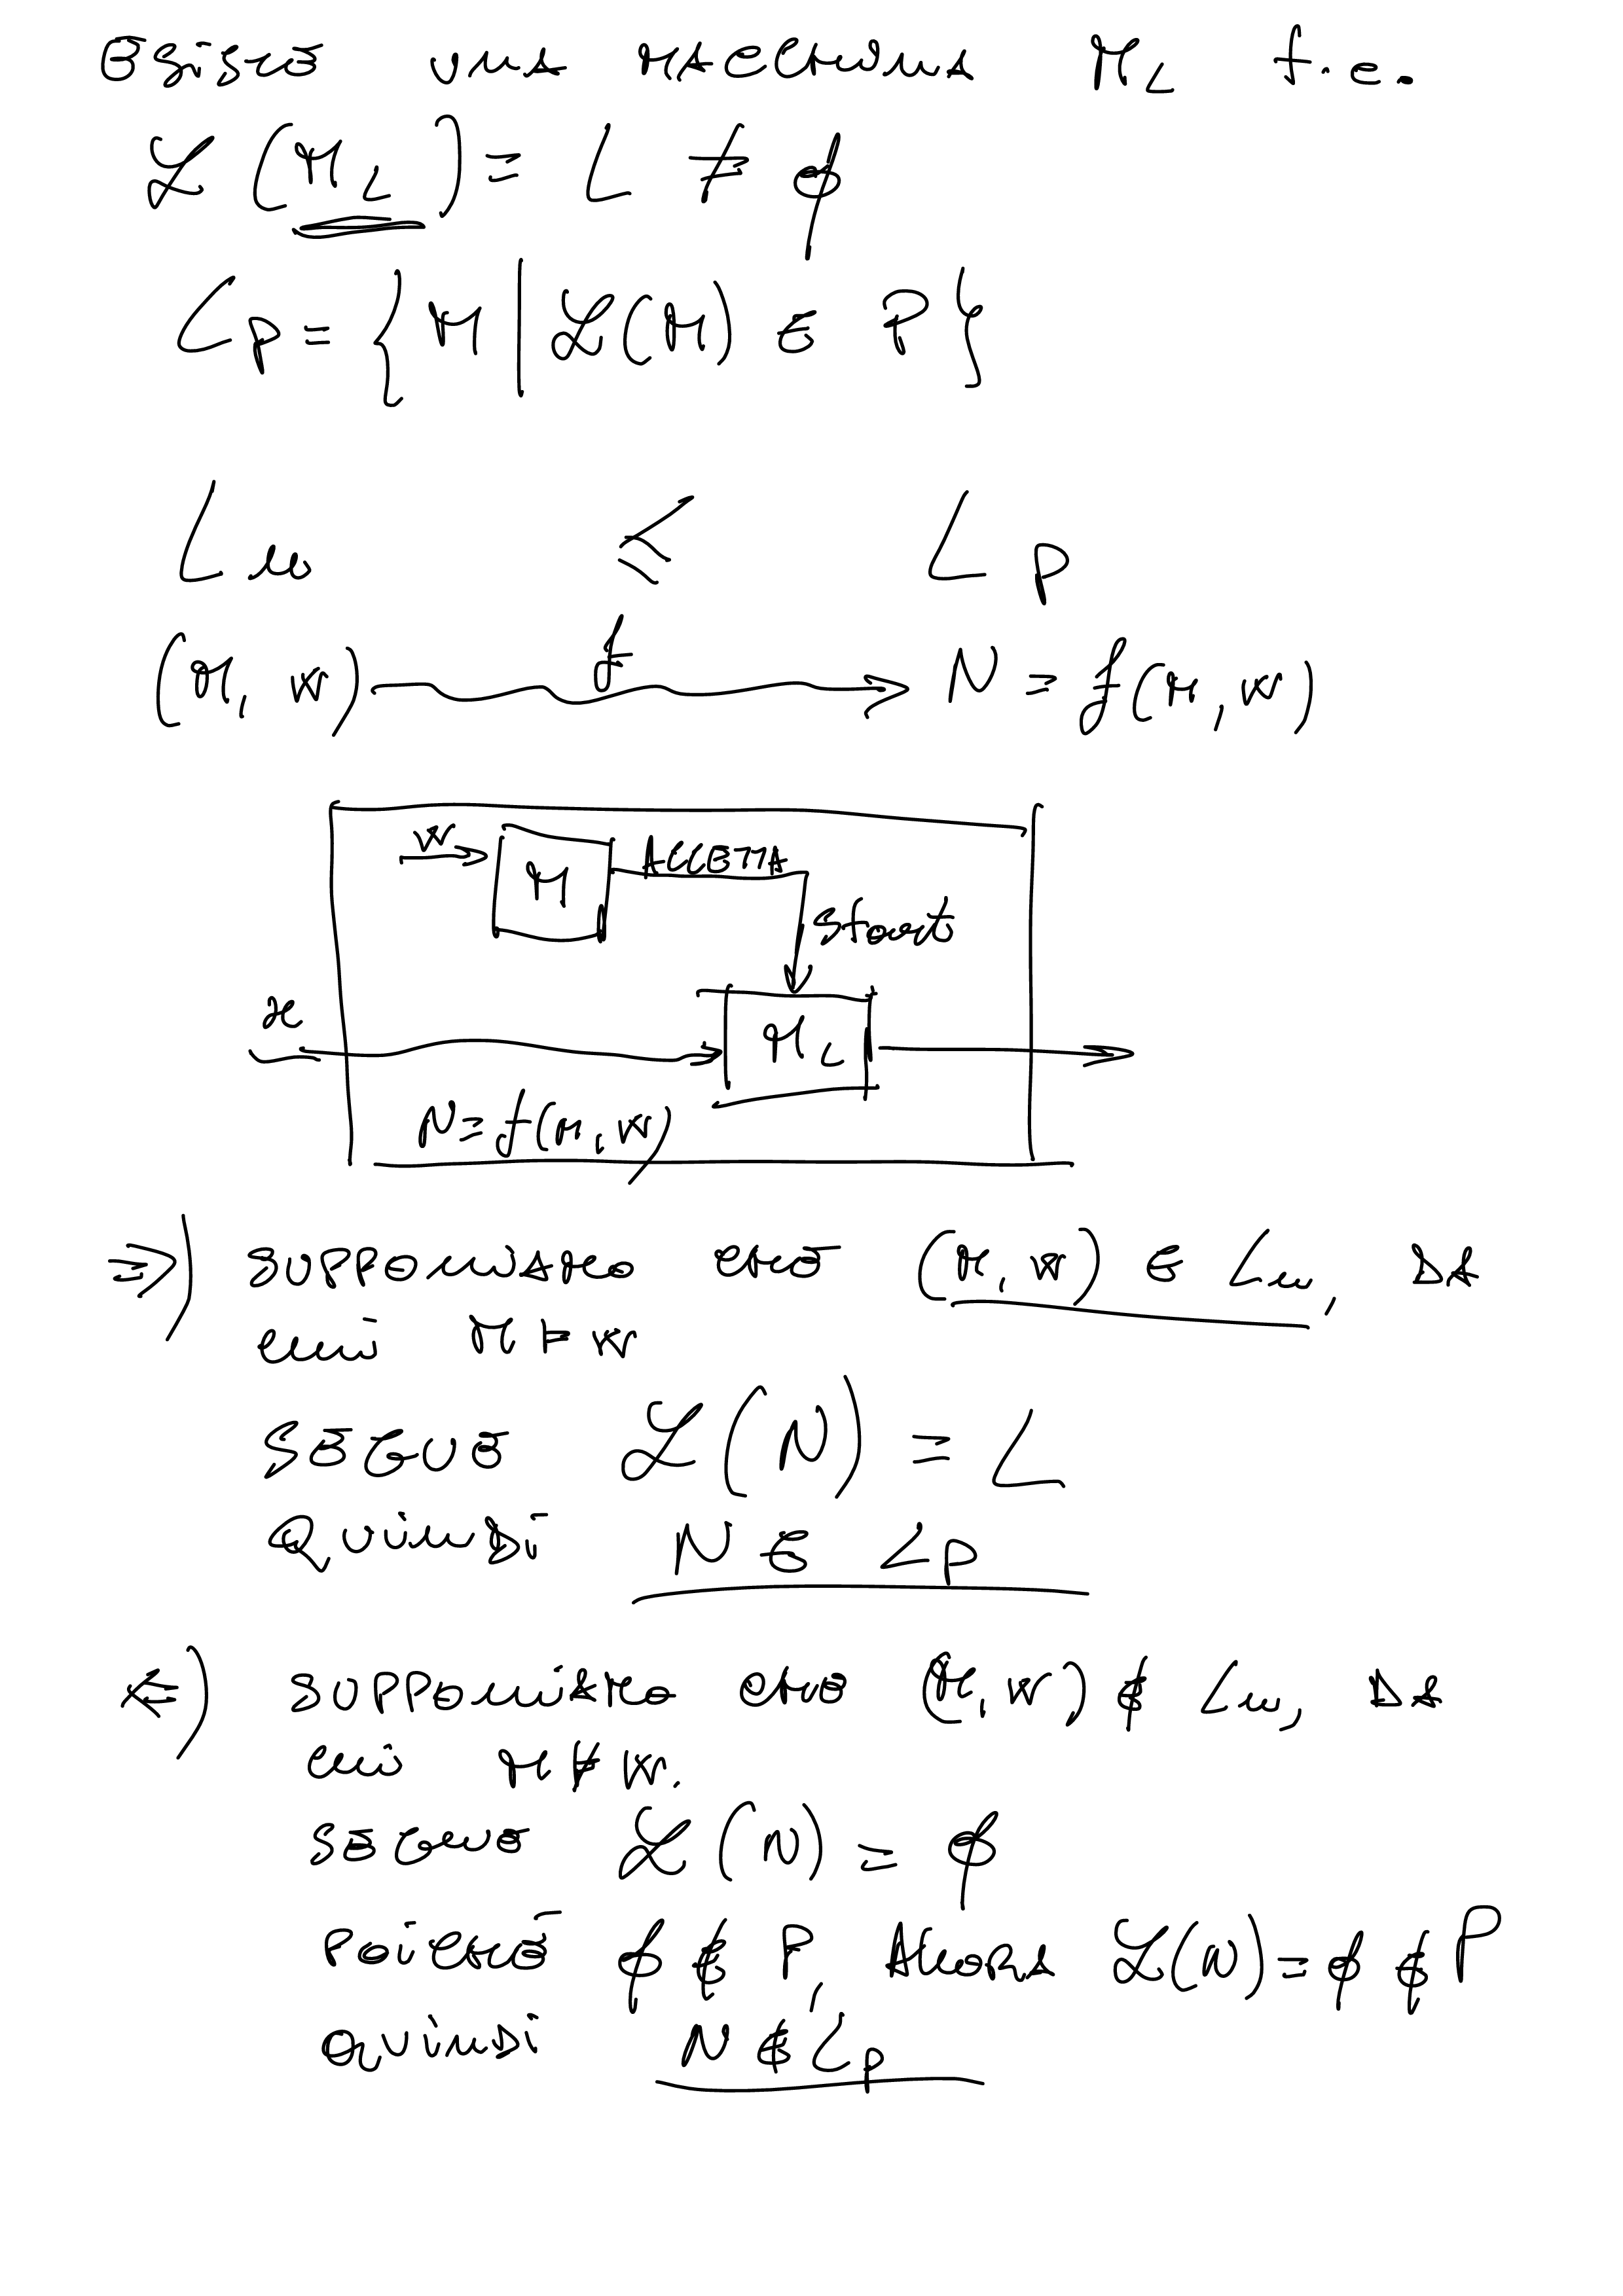 ESISTE UNA MACCHINA M_L t.c.
ℒ(M_L) = L ≠ ∅
L_P = { M | ℒ(M) ∈ P }
L_u ≤ L_P
(M, W) f N = f(M, W)
W M ACCETTA
start
x M_L
N = f(M, W)
⇒) SUPPONIAMO CHE (M, W) ∈ L_u, DA
CUI M ⊨ W
SEGUE ℒ(N) = L
QUINDI N ∈ L_P
⇐) SUPPONIAMO CHE (M, W) ∉ L_u, DA
CUI M ⊭ W.
SEGUE ℒ(N) = ∅
POICHÈ ∅ ∉ P, ALLORA ℒ(N) = ∅ ∉ P
QUINDI N ∉ L_P